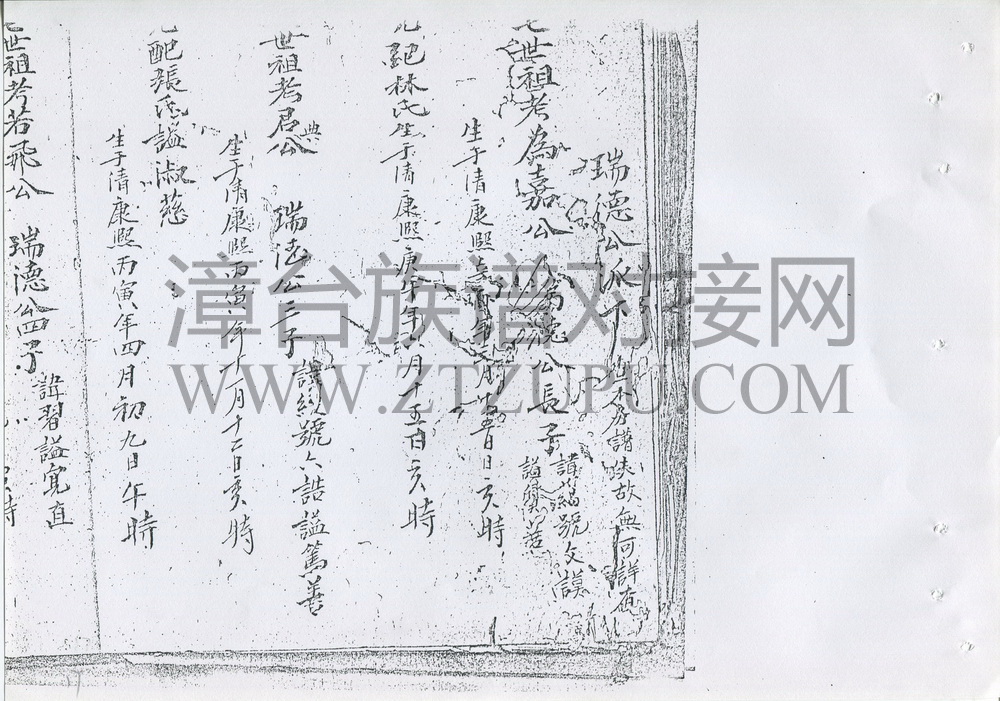 瑞德公派下
世本房譜失故無可詳
七世祖考為嘉公
瑞德公長子
諱號文謨
謚
生于清康熙年月廿五日亥時
元配林氏生于清康熙庚午年月十五日亥時
世祖考君典公
瑞公三子
諱號六誥謚篤善
生于清康熙丙寅年十一月十二日亥時
元配張氏謚淑慈
生于清康熙丙寅年四月初九日午時
七世祖考若飛公
瑞德公四子
諱習謚寬直
時
漳台族谱对接网
WWW.ZTZUPU.COM